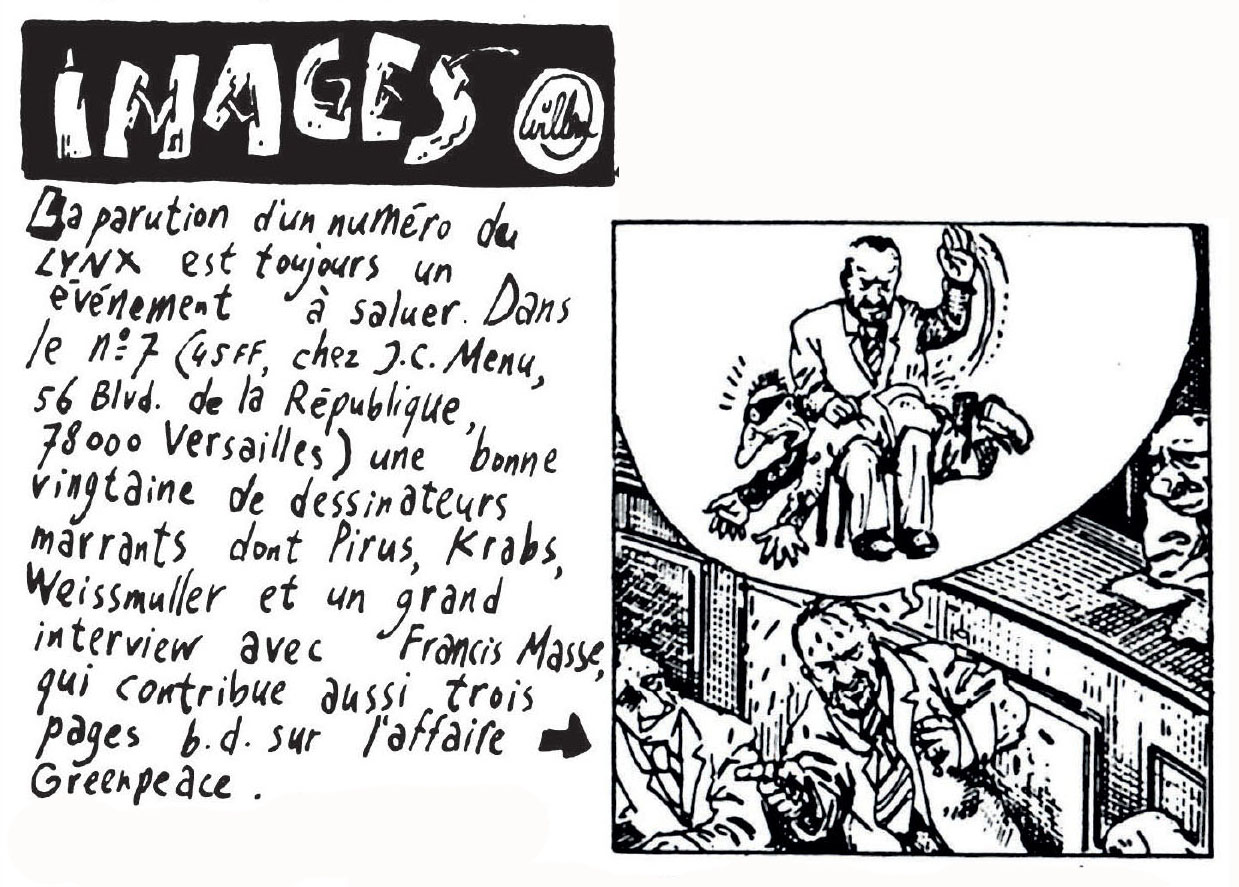 IMAGES
Willem
La parution d'un numéro du
LYNX est toujours un
événement à saluer. Dans
le n°7 (45FF, chez J.C. Menu,
56 Blvd. de la République,
78000 Versailles) une bonne
vingtaine de dessinateurs
marrants dont Pirus, Krabs,
Weissmuller et un grand
interview avec Francis Masse,
qui contribue aussi trois
pages b.d. sur l'affaire
Greenpeace.